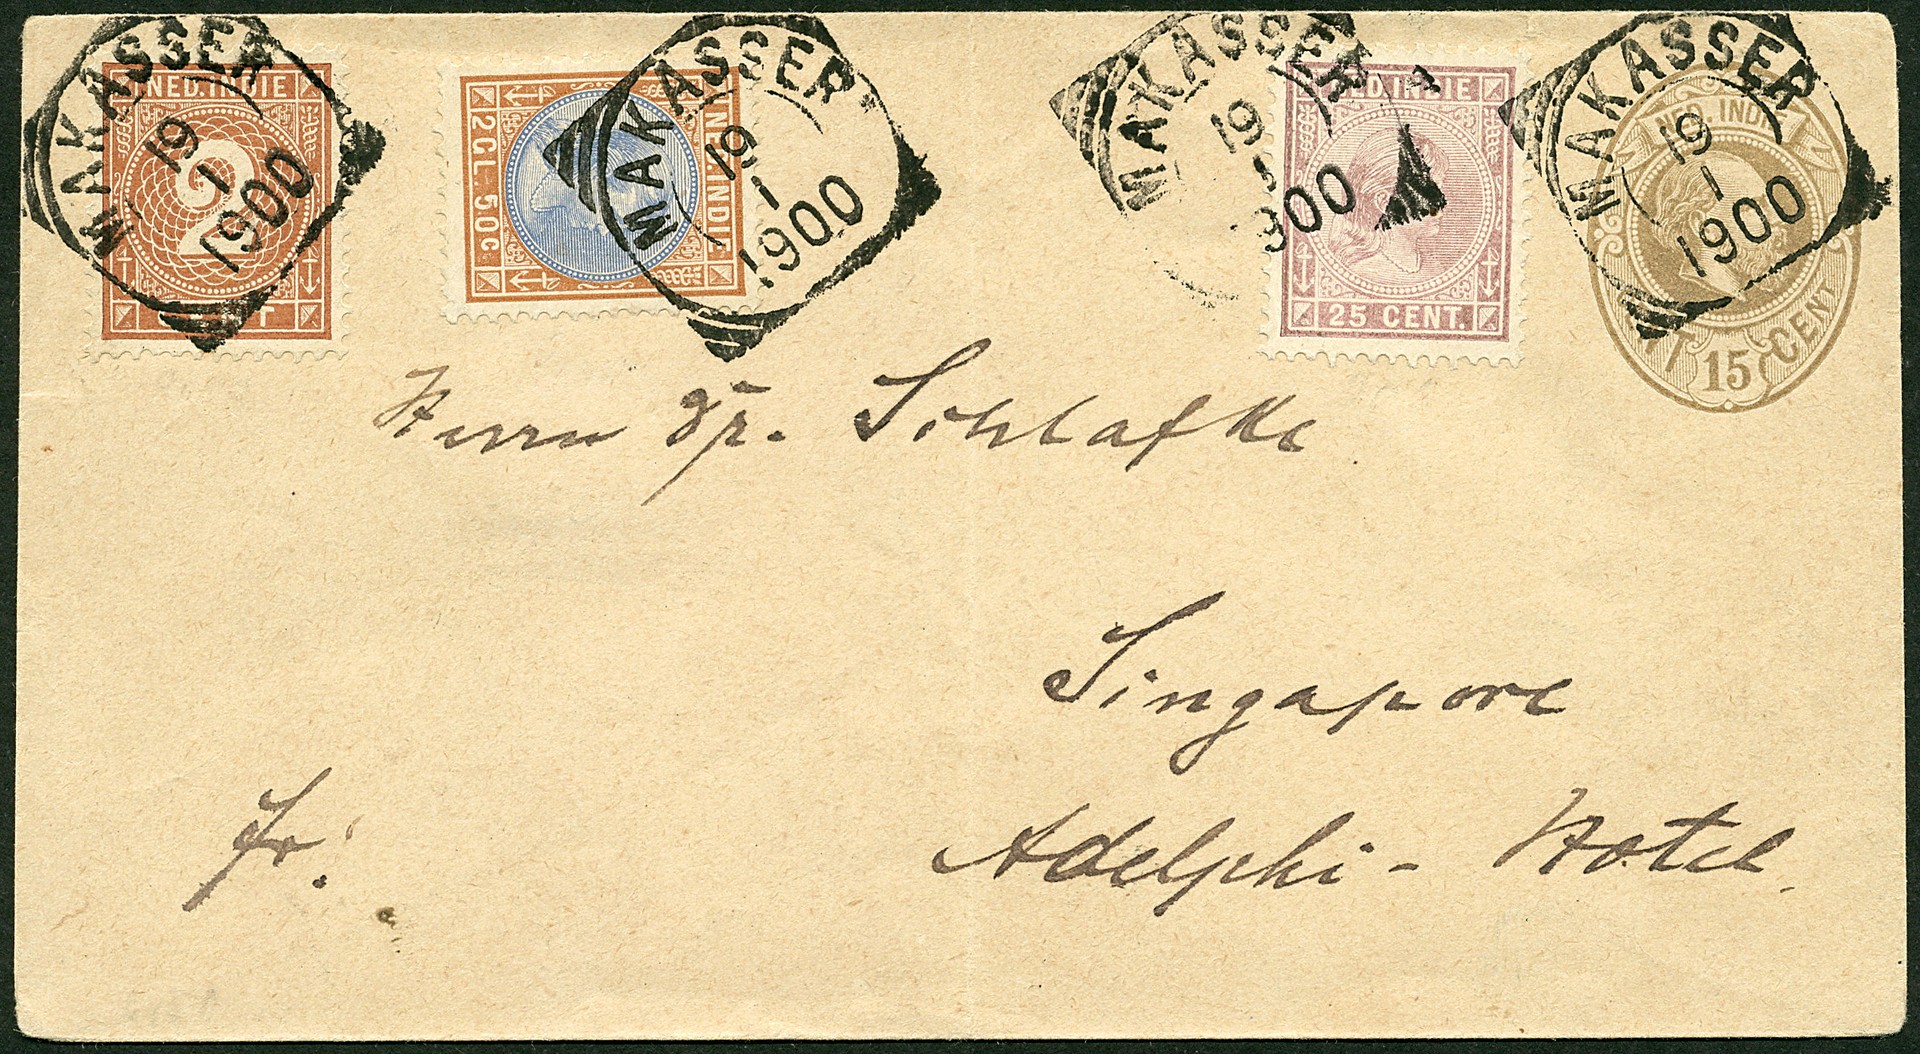 MAKASSER
19
1
1900
NED. INDIE
2
MAKASSER
19
1
1900
NED. INDIE
2 GL. 50 C.
MAKASSER
19
1900
NED. INDIE
25 CENT.
MAKASSER
19
1
1900
NED. INDIE
15 CENT
Herrn Fr. Schlafke
Singapore
Adelphi-Hotel.
fr.